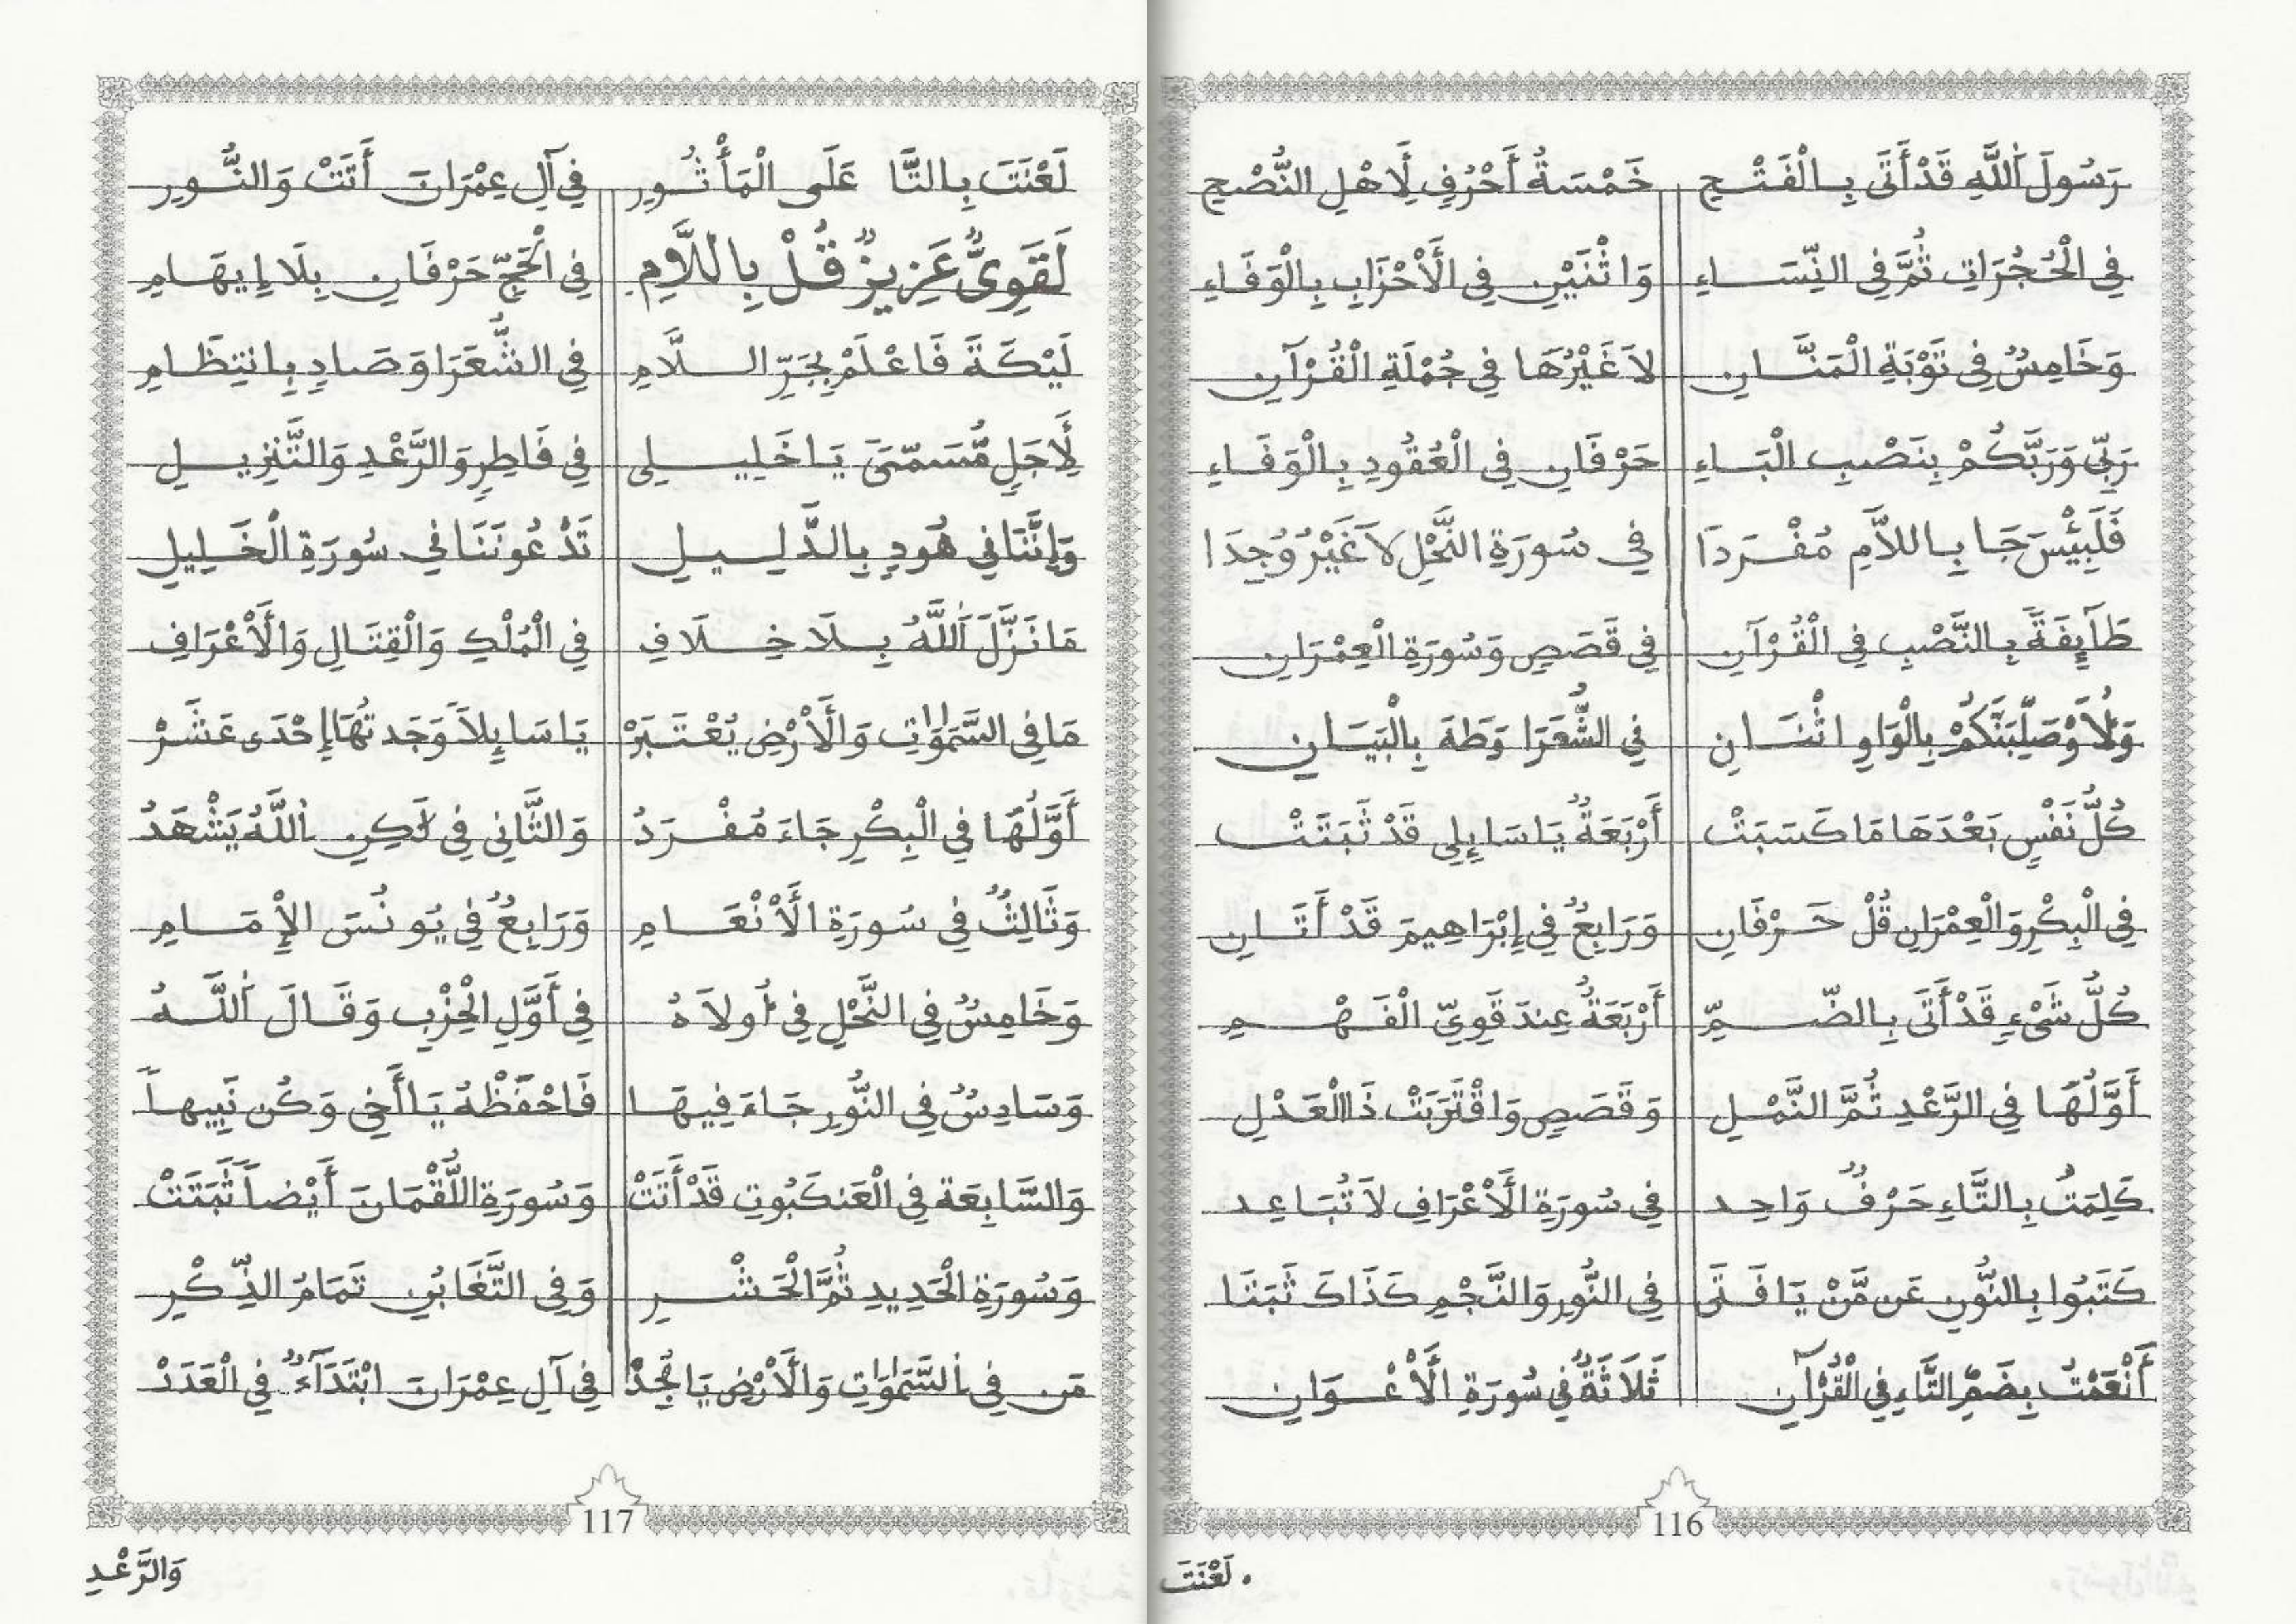 رَسُولَ اَللَّهِ قَدْ أَتَى بِالْفَتْحِ خَمْسَةُ أَحْرُفٍ لِأَهْلِ النُّصْحِ
فِي الْحُجُرَاتِ ثُمَّ فِي النِّسَاءِ وَاثْنَيْنِ فِي الْأَحْزَابِ بِالْوَفَاءِ
وَخَامِسٌ فِي تَوْبَةِ الْمَنَّانِ لاَ غَيْرُهَا فِي جُمْلَةِ الْقُرْآنِ
رَبِّي وَرَبَّكُمْ بِنَصْبِ الْبَاءِ حَرْفَانِ فِي الْعُقُودِ بِالْوَفَاءِ
فَلَبِئْسَ جَا بِاللاَّمِ مُفْرَدَا فِي سُورَةِ النَّحْلِ لاَ غَيْرُ وُجِدَا
طَآئِفَةً بِالنَّصْبِ فِي الْقُرْآنِ فِي قَصَصٍ وَسُورَةِ الْعِمْرَانِ
وَلأُوصَلِّبَنَّكُمْ بِالْوَاوِ اثْنَانِ فِي الشُّعَرَا وَطَهَ بِالْبَيَانِ
كُلُّ نَفْسٍ بَعْدَهَا مَا كَسَبَتْ أَرْبَعَةٌ يَا سَايِلِي قَدْ ثَبَتَتْ
فِي الْبِكْرِ وَالْعِمْرَانِ قُلْ حَرْفَانِ وَرَابِعٌ فِي إِبْرَاهِيمَ قَدْ أَتَانِ
كُلُّ شَيْءٍ قَدْ أَتَى بِالضَّمِّ أَرْبَعَةٌ عِندَ قَوِيِّ الْفَهْمِ
أَوَّلُهَا فِي الرَّعْدِ ثُمَّ النَّمْلِ وَقَصَصٍ وَاقْتَرَبَتْ ذَا الْعَدْلِ
كَلِمَتُ بِالتَّاءِ حَرْفٌ وَاحِد فِي سُورَةِ الْأَعْرَافِ لاَ تُبَاعِد
كَتَبُوا بِالنُّونِ عَن مَّنْ يَا فَتَى فِي النُّورِ وَالنَّجْمِ كَذَاكَ ثَبَتَا
أَنْعَمْتُ بِضَمِّ التَّاءِ فِي الْقُرْآنِ ثَلاَثَةٌ فِي سُورَةِ الْأَعْوَانِ
116
لَعْنَتَ
لَعْنَتَ بِالتَّا عَلَى الْمَأْثُورِ فِي آلِ عِمْرَانَ أَتَتْ وَالنُّورِ
لَقَوِيٌّ عَزِيزٌ قُلْ بِاللاَّمِ فِي الْحَجِّ حَرْفَانِ بِلَا إِيهَامِ
لَيْكَةَ فَاعْلَمْ بِجَرِّ اللَّامِ فِي الشُّعَرَا وَصَادِ بِانتِظَامِ
لِأَجَلٍ مُّسَمّىً يَا خَلِيلِي فِي فَاطِرٍ وَالرَّعْدِ وَالتَّنْزِيلِ
وَإِنَّنَا فِي هُودٍ بِالدَّلِيلِ تَدْعُونَنَا فِي سُورَةِ الْخَلِيلِ
مَا نَزَّلَ اَللَّهُ بِلَا خِلَافِ فِي الْمُلْكِ وَالْقِتَالِ وَالْأَعْرَافِ
مَا فِي السَّمَوَاتِ وَالْأَرْضِ يُعْتَبَرْ يَا سَايِلاَ وَجَدتُهَا إِحْدَى عَشَرْ
أَوَّلُهَا فِي الْبِكْرِ جَاءَ مُفْرَدُ وَالثَّانِي فِي لَكِنِ اِللَّهُ يَشْهَدُ
وَثَالِثٌ فِي سُورَةِ الْأَنْعَامِ وَرَابِعٌ فِي يُونُسَ الإِمَامِ
وَخَامِسٌ فِي النَّحْلِ فِي أُولاَهُ فِي أَوَّلِ الْحِزْبِ وَقَالَ اَللَّهُ
وَسَادِسٌ فِي النُّورِ جَاءَ فِيهَا فَاحْفَظْهُ يَا أَخِي وَكُن نَبِيهاَ
وَالسَّابِعَة فِي الْعَنكَبُوتِ قَدْ أَتَتْ وَسُورَةِ اللُّقْمَانَ أَيْضاً ثَبَتَتْ
وَسُورَةِ الْحَدِيدِ ثُمَّ الْحَشْرِ وَفِي التَّغَابُنِ تَمَامُ الذِّكْرِ
مَن فِي السَّمَوَاتِ وَالْأَرْضِ يَا مُجِدْ فِي آلِ عِمْرَانَ ابْتَدَآءٌ فِي الْعَدَدْ
117
وَالرَّعْدِ